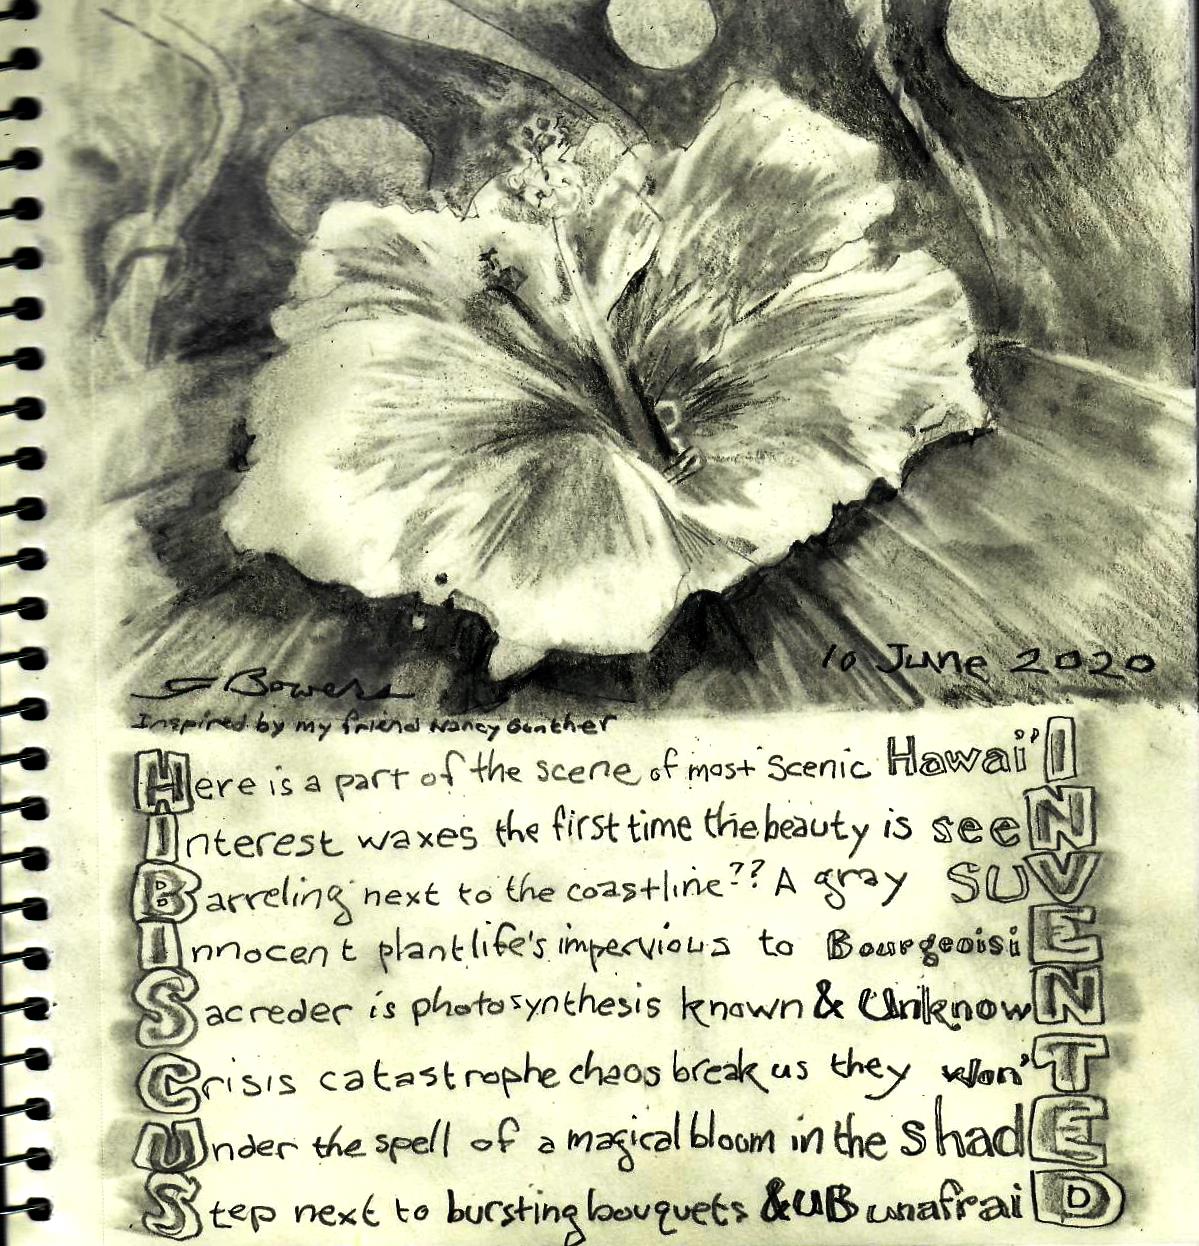 10 June 2020
J Bowers
Inspired by my friend Nancy Gunther
Here is a part of the scene of most scenic Hawai'I
Interest waxes the first time the beauty is seeN
Barreling next to the coastline?? A gray SUV
Innocent plantlife's impervious to BourgeoisiE
Sacreder is photosynthesis known & UnknowN
Crisis catastrophe chaos break us they won'T
Under the spell of a magical bloom in the shadE
Step next to bursting bouquets &UB unafraiD